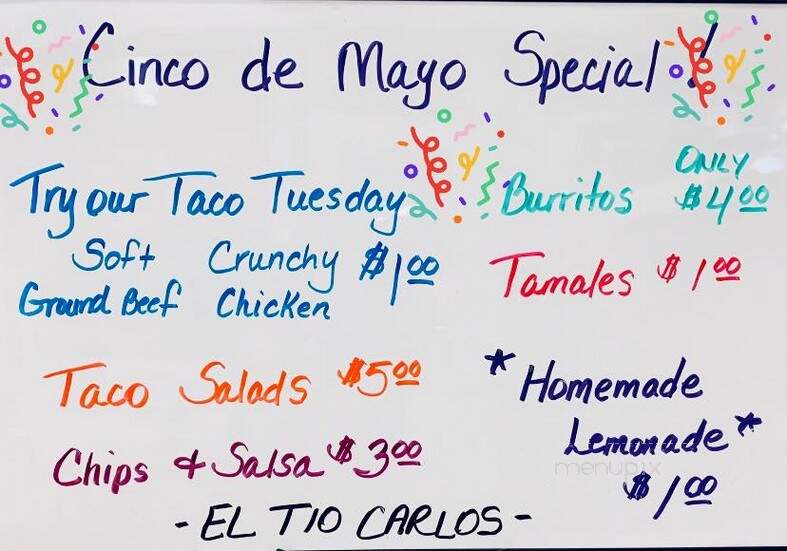 Cinco de Mayo Special!
Try our Taco Tuesday
Soft Crunchy $1.00
Ground Beef Chicken
Taco Salads $5.00
Chips & Salsa $3.00
ONLY
Burritos $4.00
Tamales $1.00
*Homemade
Lemonade*
$1.00
- EL TIO CARLOS -
menupix